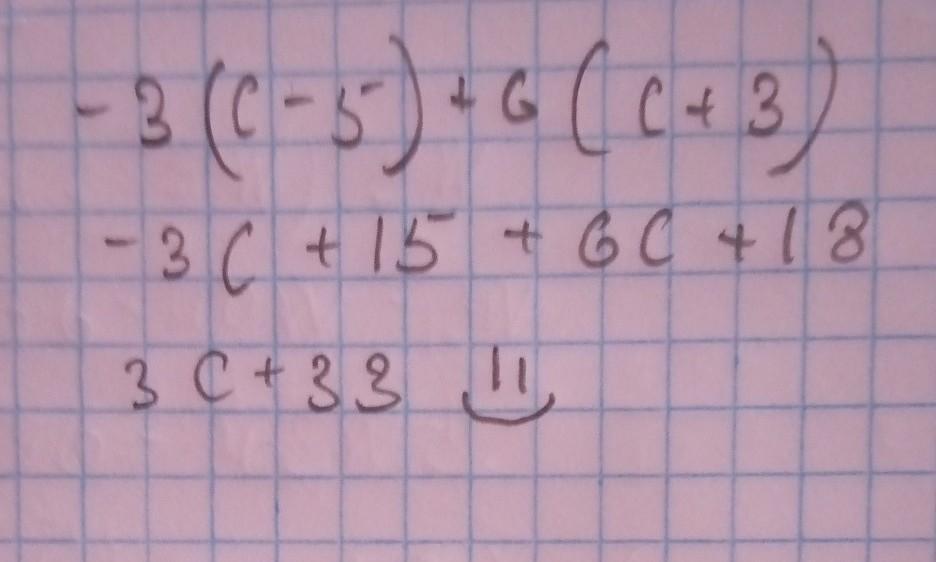 -3(c-5)+6(c+3)
-3c+15+6c+18
3c+33